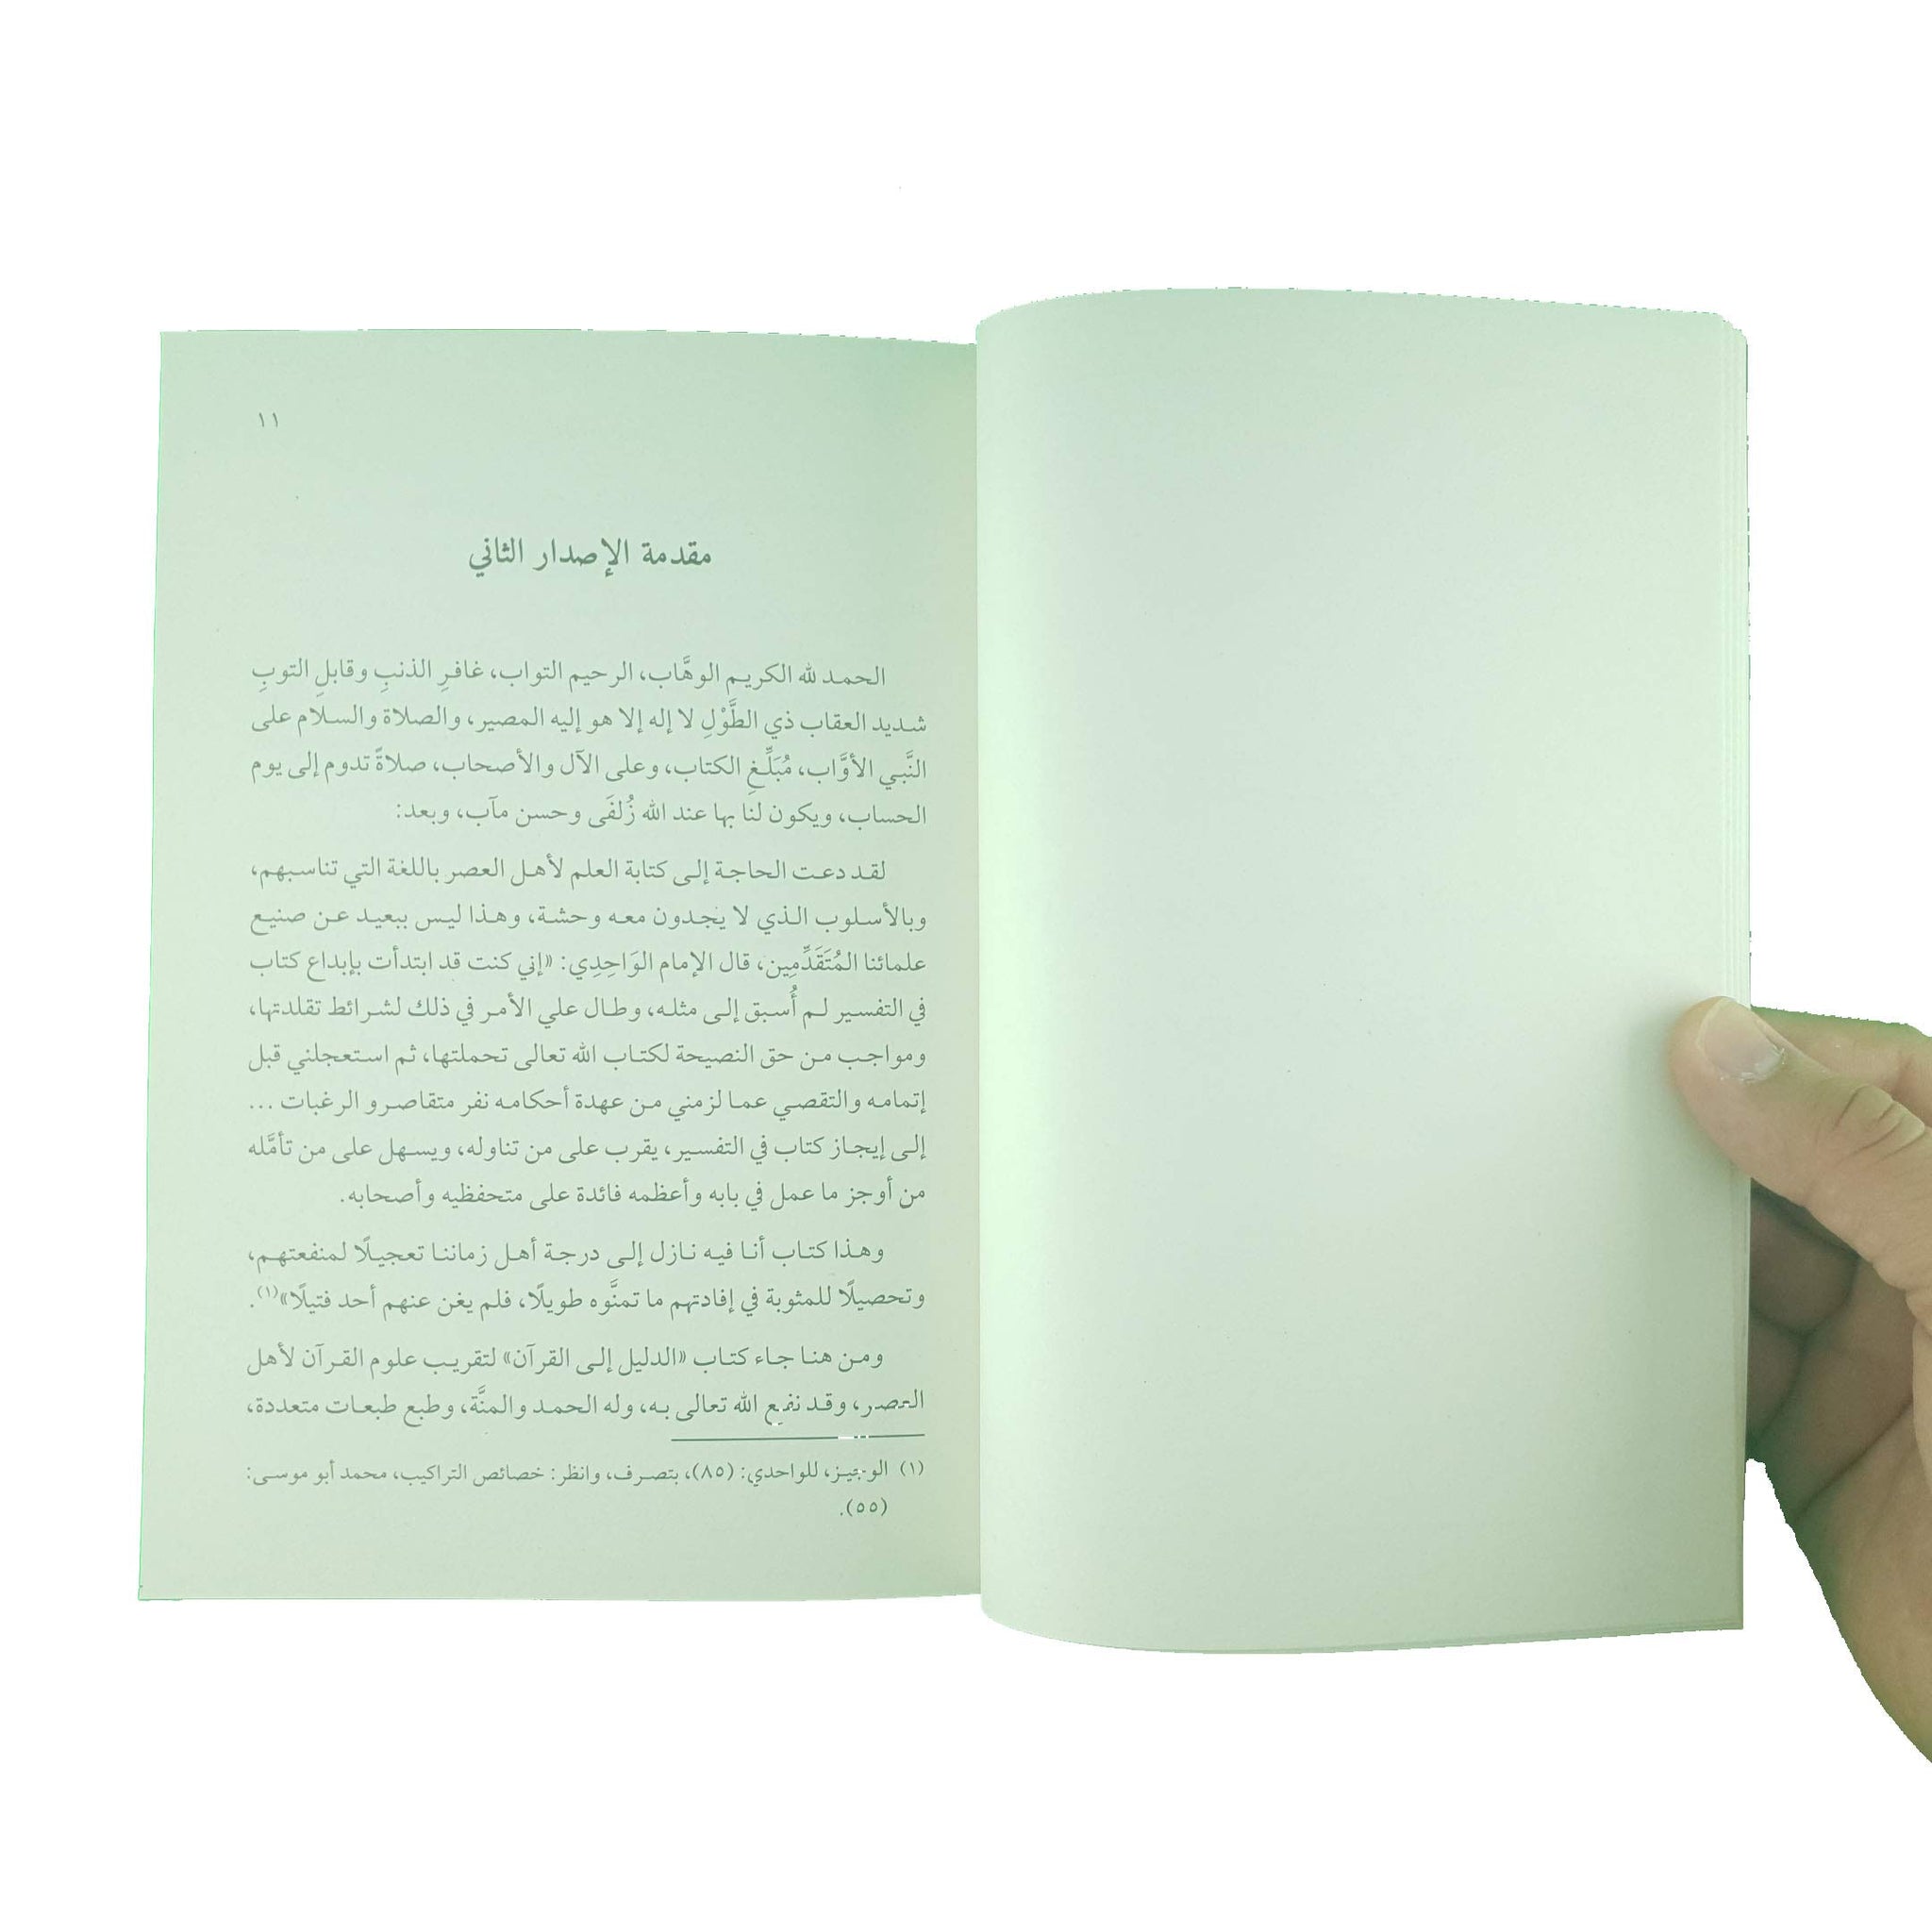 ١١
مقدمة الإصدار الثاني
الحمد لله الكريم الوهَّاب، الرحيم التواب، غافرِ الذنبِ وقابلِ التوبِ
شديد العقاب ذي الطَّوْلِ لا إله إلا هو إليه المصير، والصلاة والسلام على
النَّبي الأوَّاب، مُبَلِّغِ الكتاب، وعلى الآل والأصحاب، صلاةً تدوم إلى يوم
الحساب، ويكون لنا بها عند الله زُلفَى وحسن مآب، وبعد:
لقد دعت الحاجة إلى كتابة العلم لأهل العصر باللغة التي تناسبهم،
وبالأسلوب الذي لا يجدون معه وحشة، وهذا ليس ببعيد عن صنيع
علمائنا المُتَقَدِّمِين، قال الإمام الوَاحِدِي: «إني كنت قد ابتدأت بإبداع كتاب
في التفسير لم أُسبق إلى مثله، وطال علي الأمر في ذلك لشرائط تقلدتها،
ومواجب من حق النصيحة لكتاب الله تعالى تحملتها، ثم استعجلني قبل
إتمامه والتقصي عما لزمني من عهدة أحكامه نفر متقاصرو الرغبات ...
إلى إيجاز كتاب في التفسير، يقرب على من تناوله، ويسهل على من تأمَّله
من أوجز ما عمل في بابه وأعظمه فائدة على متحفظيه وأصحابه.
وهذا كتاب أنا فيه نازل إلى درجة أهل زماننا تعجيلًا لمنفعتهم،
وتحصيلًا للمثوبة في إفادتهم ما تمنَّوه طويلًا، فلم يغن عنهم أحد فتيلًا»(١).
ومن هنا جاء كتاب «الدليل إلى القرآن» لتقريب علوم القرآن لأهل
العصر، وقد نفع الله تعالى به، وله الحمد والمنَّة، وطبع طبعات متعددة،
(١) الوجيز، للواحدي: (٨٥)، بتصرف، وانظر: خصائص التراكيب، محمد أبو موسى:
(٥٥).